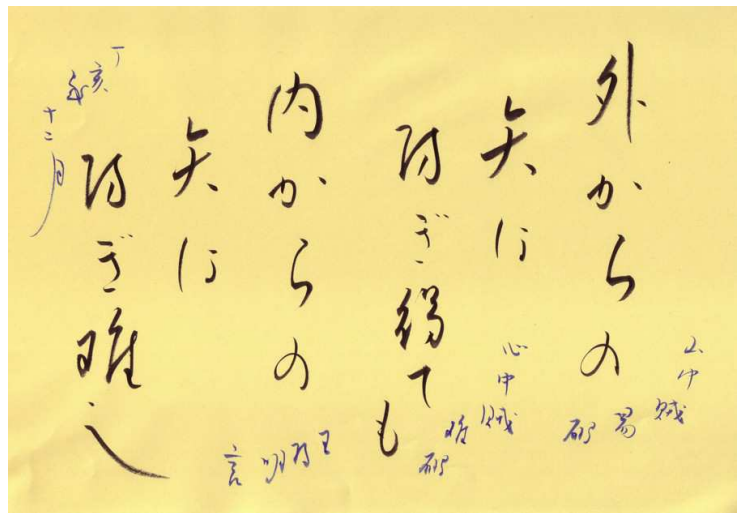 外からの
矢は
防ぎ得ても
内からの
矢は
防ぎ難し
山中賊易破
心中賊難破
王陽明言
丁亥
十二月